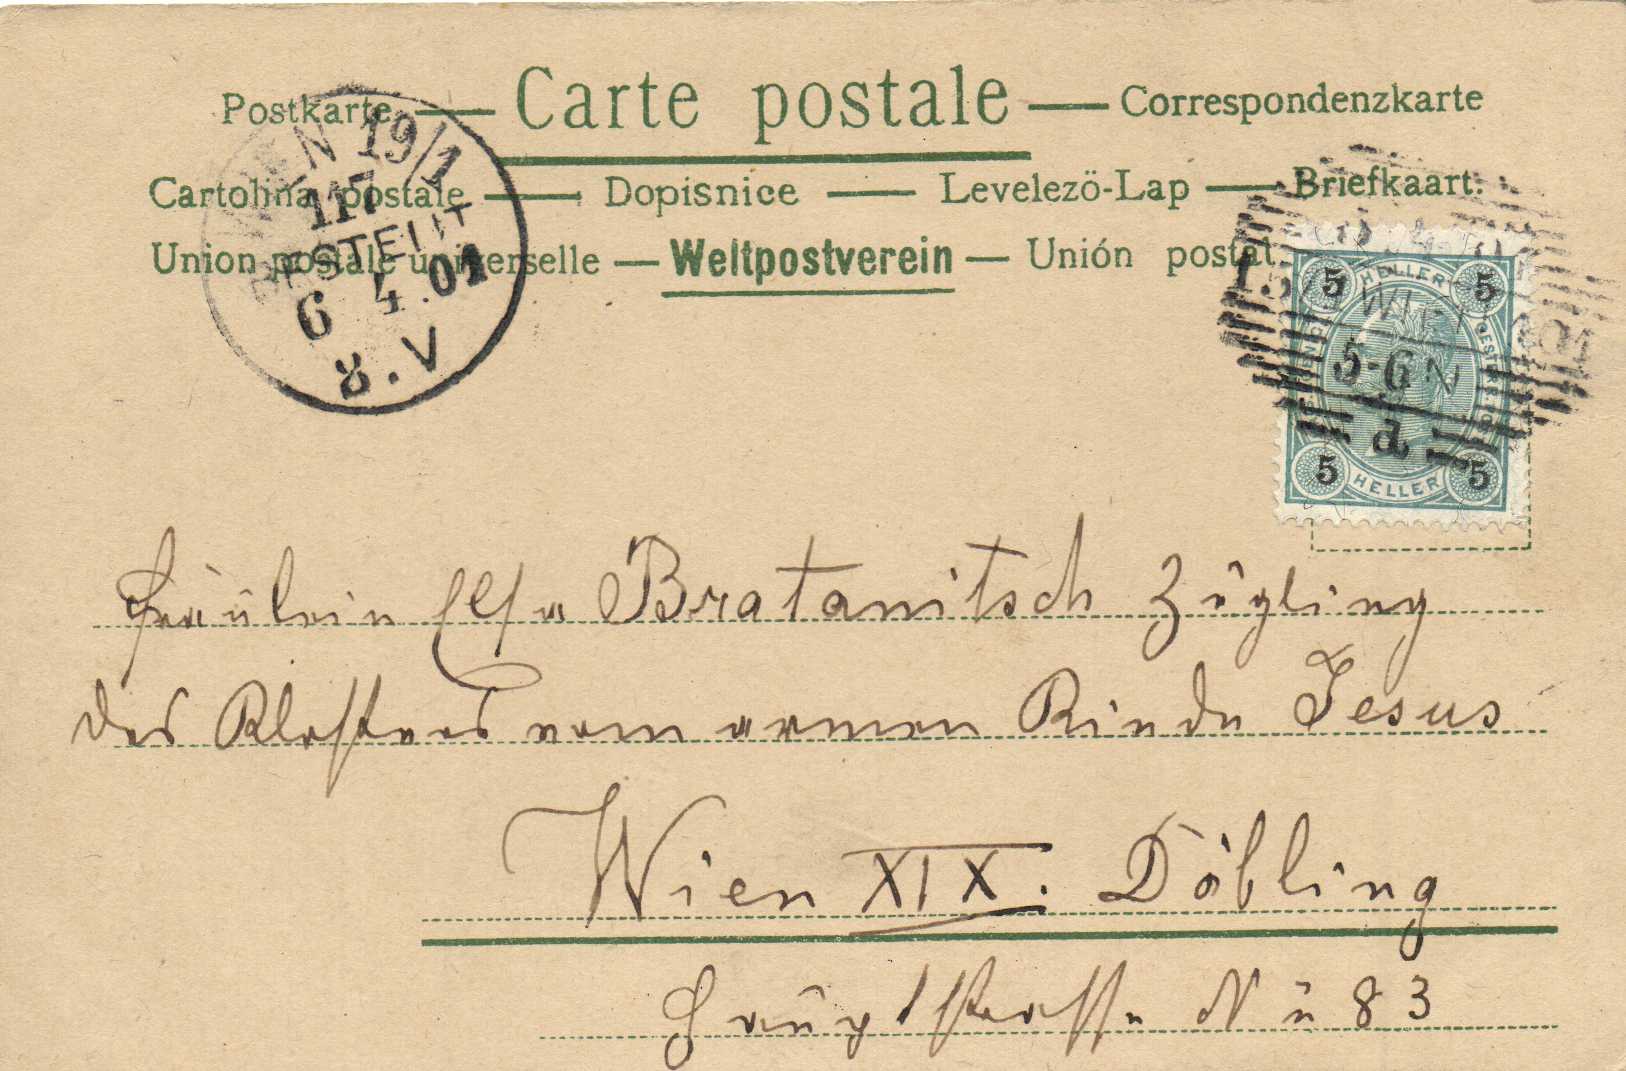 Postkarte — Carte postale — Correspondenzkarte
Cartolina postale — Dopisnice — Levelezö-Lap — Briefkaart.
Union postale universelle — Weltpostverein — Unión postal
WIEN 19/1
117
BESTELLT
6 4 01
8.V
HELLER
5 5
WIEN
5-6 N
d
5 5
HELLER
Fräulein Elsa Bratanitsch Zügling
des Klosters vom armen Kinde Jesus
Wien XIX. Döbling
Hauptstrasse Nº 83